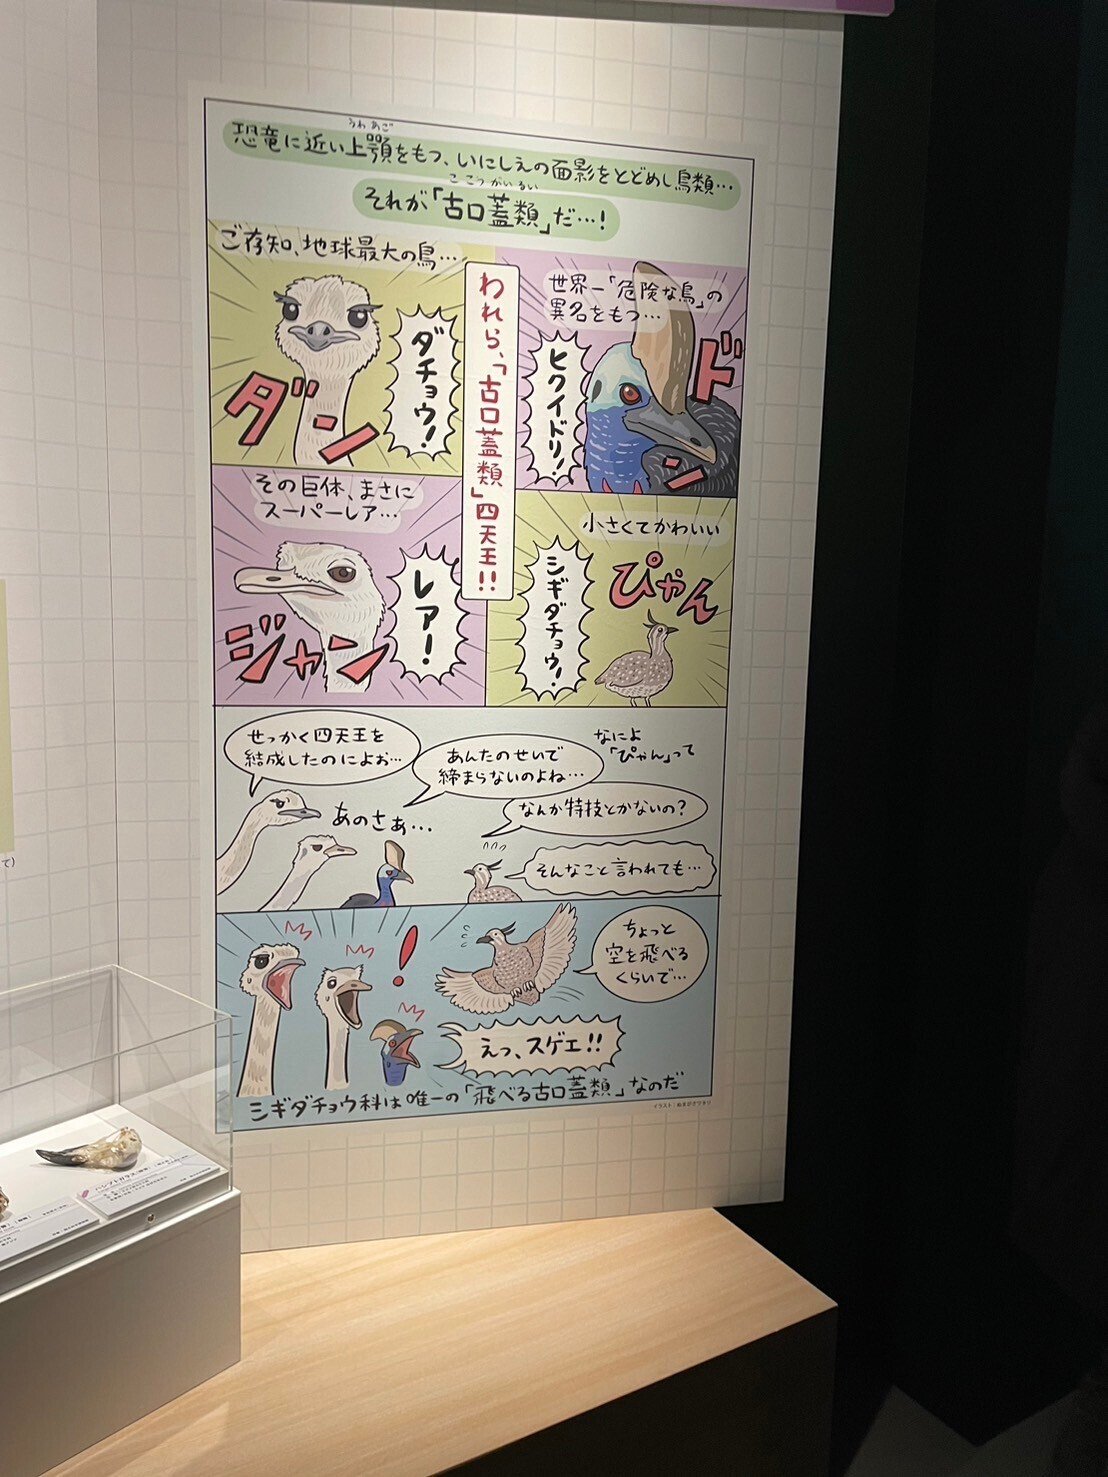 恐竜に近い上顎をもつ、いにしえの面影をとどめし鳥類…
うわあご
それが「古口蓋類」だ…!
ここうがいるい
ご存知、地球最大の鳥…
ダチョウ!
ダン
われら、「古口蓋類」四天王!!
世界一「危険な鳥」の
異名をもつ…
ヒクイドリ!
ドン
その巨体、まさに
スーパーレア…
レアー!
ジャン
小さくてかわいい
シギダチョウ!
ぴゃん
せっかく四天王を
結成したのによぉ…
あのさぁ…
あんたのせいで
締まらないのよね…
なによ
「ぴゃん」って
なんか特技とかないの?
そんなこと言われても…
ちょっと
空を飛べる
くらいで…
!
えっ、スゲエ!!
シギダチョウ科は唯一の「飛べる古口蓋類」なのだ
イラスト:ぬまがさワタリ
ハシブトガラス